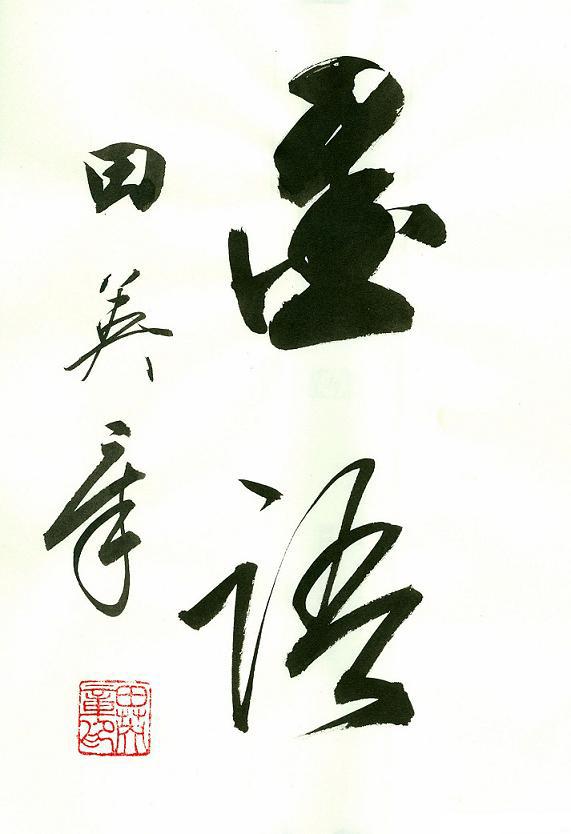 语
田英章
田英章印